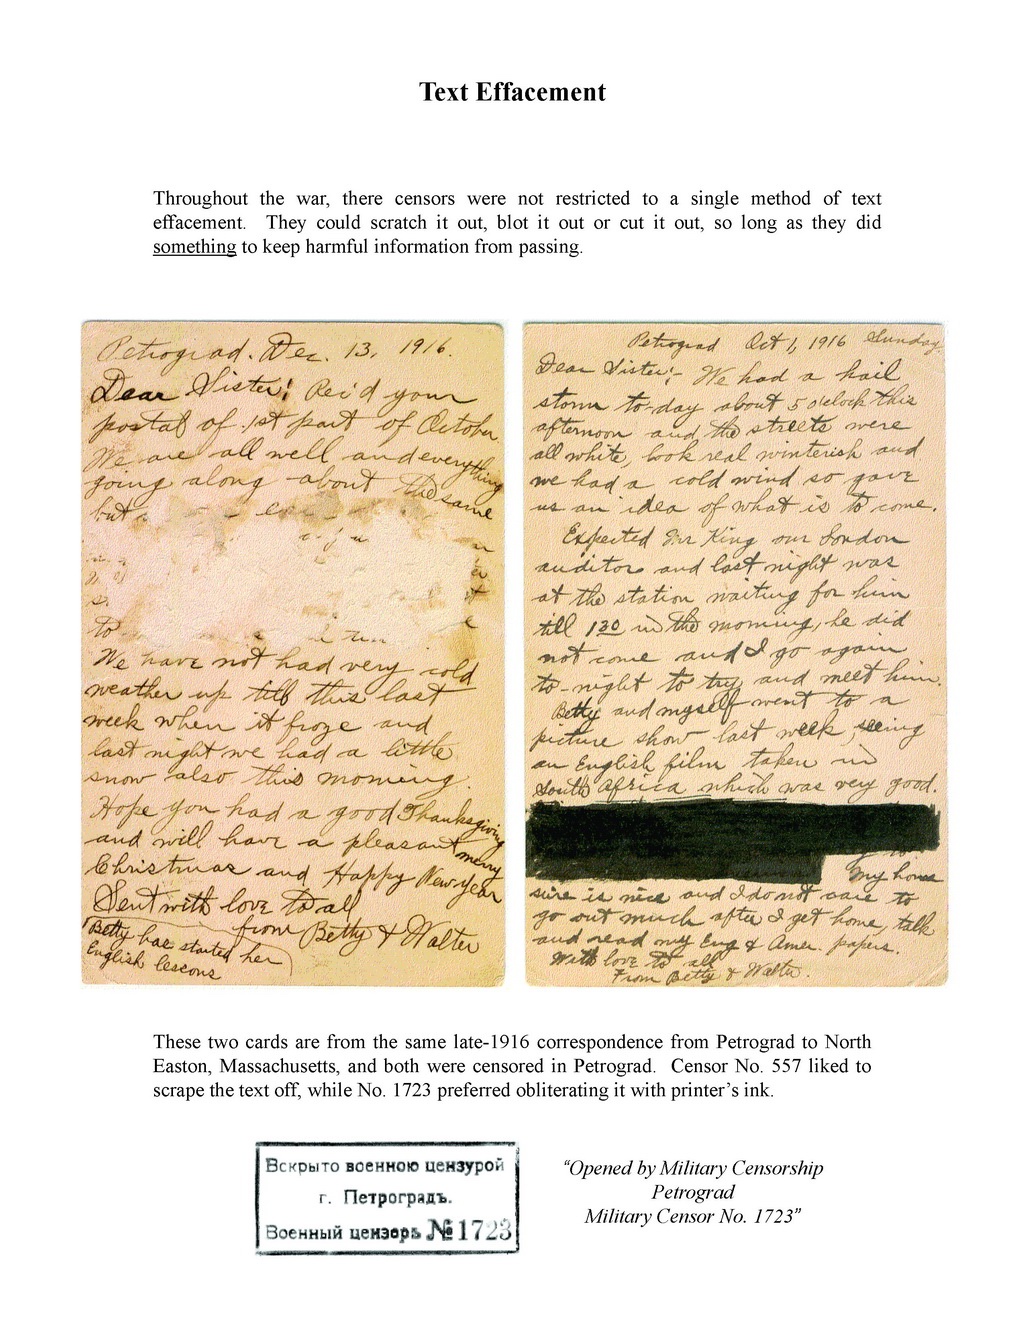 Text Effacement
Throughout the war, there censors were not restricted to a single method of text
effacement. They could scratch it out, blot it out or cut it out, so long as they did
something to keep harmful information from passing.
Petrograd. Dec. 13, 1916.
Dear Sister! Rec'd your
postal of 1st part of October
We are all well and everything
going along about the same
but
to
We have not had very cold
weather up till this last
week when it froze and
last night we had a little
snow also this morning.
Hope you had a good Thanksgiving
and will have a pleasant merry
Christmas and Happy New Year
Sent with love to all
from Betty & Walter
Betty has started her
English lessons
Petrograd Oct 1, 1916 Sunday.
Dear Sister;- We had a hail
storm to-day about 5 o'clock this
afternoon and the streets were
all white, look real winterish and
we had a cold wind so gave
us an idea of what is to come.
Expected Mr King our London
auditor and last night was
at the station waiting for him
till 1 30 in the morning, he did
not come and I go again
to-night to try and meet him.
Betty and myself went to a
picture show last week, seeing
an English film taken in
South Africa which was very good.
My home
sure is nice and I do not care to
go out much after I get home, talk
and read my Eng & Amer. papers.
With love to all
From Betty & Walter.
These two cards are from the same late-1916 correspondence from Petrograd to North
Easton, Massachusetts, and both were censored in Petrograd. Censor No. 557 liked to
scrape the text off, while No. 1723 preferred obliterating it with printer's ink.
Вскрыто военною цензурой
г. Петроградъ.
Военный цензоръ №1723
"Opened by Military Censorship
Petrograd
Military Censor No. 1723"